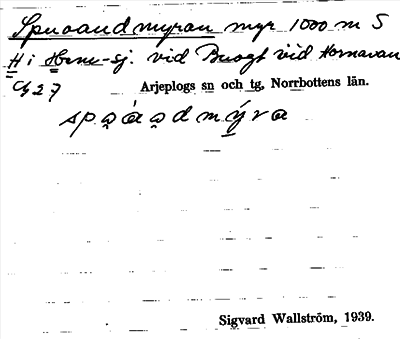 Spuoandmyran myr 1000 m S
H i Hornu-sj. vid Buogt vid Hornavan
G 27 Arjeplogs sn och tg, Norrbottens län.
Sigvard Wallström, 1939.